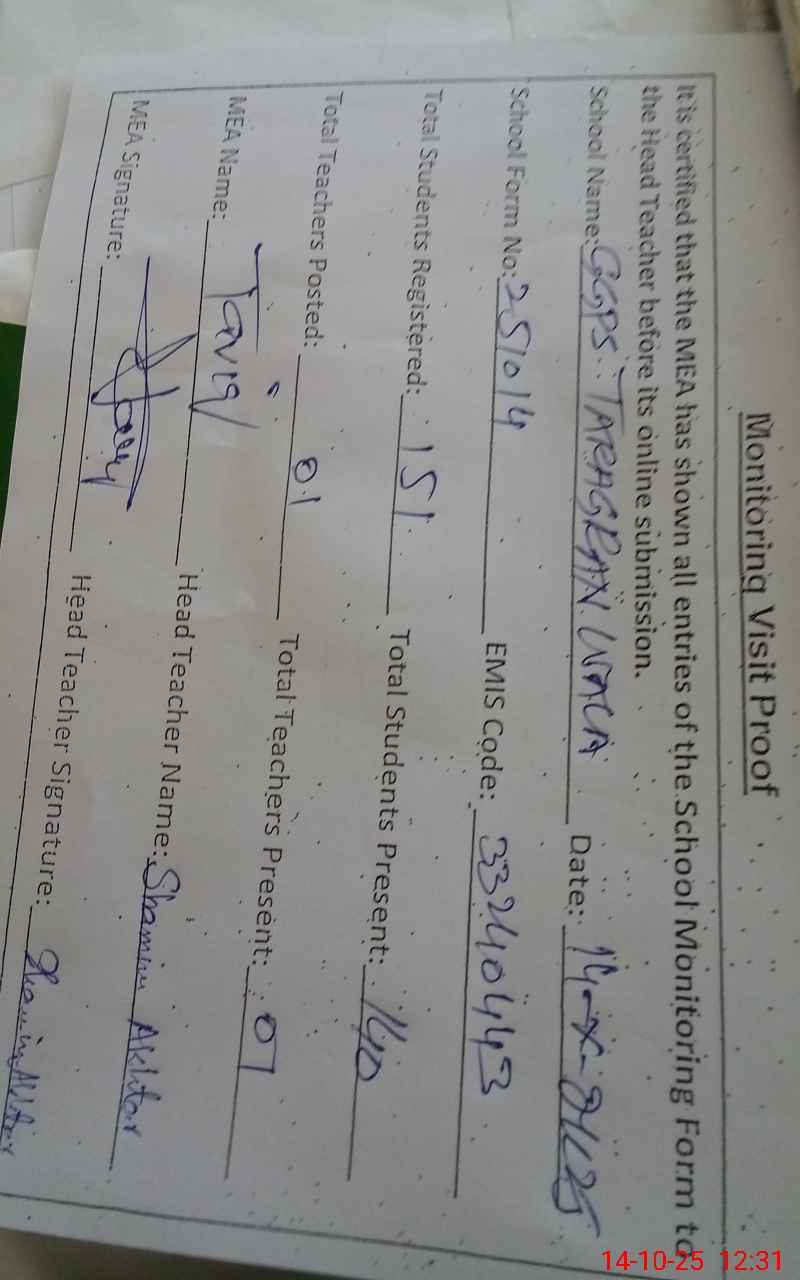 Monitoring Visit Proof
It is certified that the MEA has shown all entries of the School Monitoring Form to
the Head Teacher before its online submission.
School Name: GGPS TARAGRAN WALA Date: 14-X-2025
School Form No: 251014 EMIS Code: 33240443
Total Students Registered: 151 Total Students Present: 140
Total Teachers Posted: 01 Total Teachers Present: 01
MEA Name: Tariq Head Teacher Name: Shamim Akhtar
MEA Signature: Head Teacher Signature: Shamim Akhtar
14-10-25 12:31